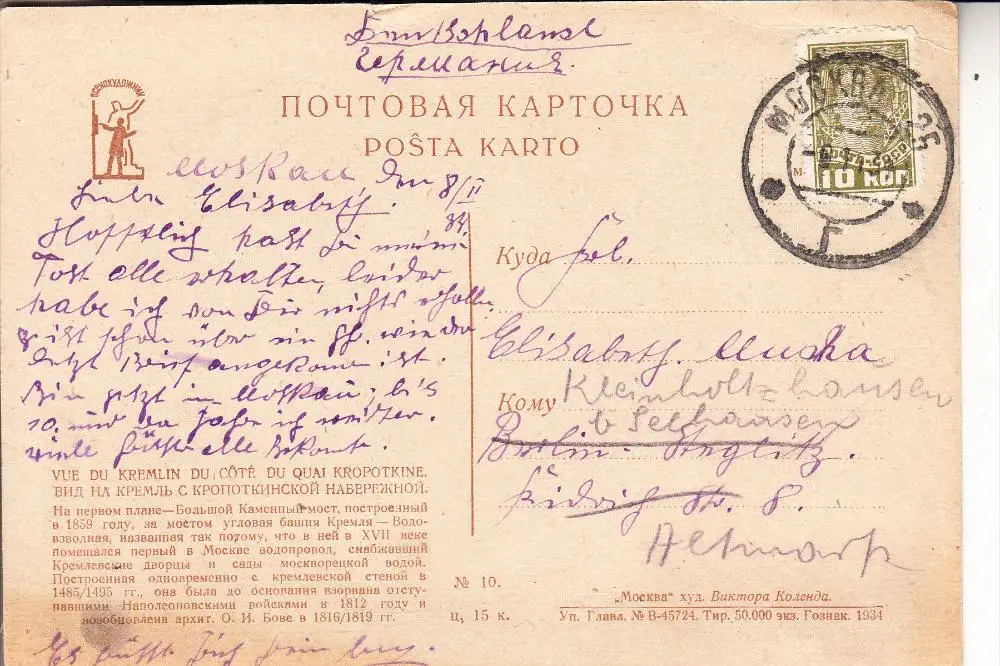 Deutschland
Германия.
ВСЕКОХУДОЖНИК
ПОЧТОВАЯ КАРТОЧКА
POŜTA KARTO
МОСКВА 25
10 КОП
Г
Moskau den 8/II
34.
Liebe Elisabeth.
Hoffentlich hast Du meine
Post alle erhalten, leider
habe ich von Dir nichts erhalten
ist schon über ein
letzt Brief angekomen ist.
Bin jetzt in Moskau, bis
10. und da fahre ich weiter.
viele Grüße alle Bekante.
Куда Frl.
Elisabeth. Mucha
Кому Kleinholtz hausen
b Seehausen
Berlin-Steglitz.
Fridrich Str. 8.
Altmark
VUE DU KREMLIN DU CÔTÉ DU QUAI KROPOTKINE.
ВИД НА КРЕМЛЬ С КРОПОТКИНСКОЙ НАБЕРЕЖНОЙ.
На первом плане—Большой Каменный мост, построенный
в 1859 году, за мостом угловая башня Кремля—Водо-
взводная, названная так потому, что в ней в XVII веке
помещался первый в Москве водопровод, снабжавший
Кремлевские дворцы и сады москворецкой водой.
Построенная одновременно с кремлевской стеной в
1485/1495 гг., она была до основания взорвана отсту-
павшими Наполеоновскими войсками в 1812 году и
возобновлена архит. О. И. Бове в 1816/1819 гг.
№ 10.
ц. 15 к.
„Москва" худ. Виктора Коленда.
Уп. Главл. № В-45724. Тир. 50.000 экз. Гознак. 1934
Es grüßt Dich Dein